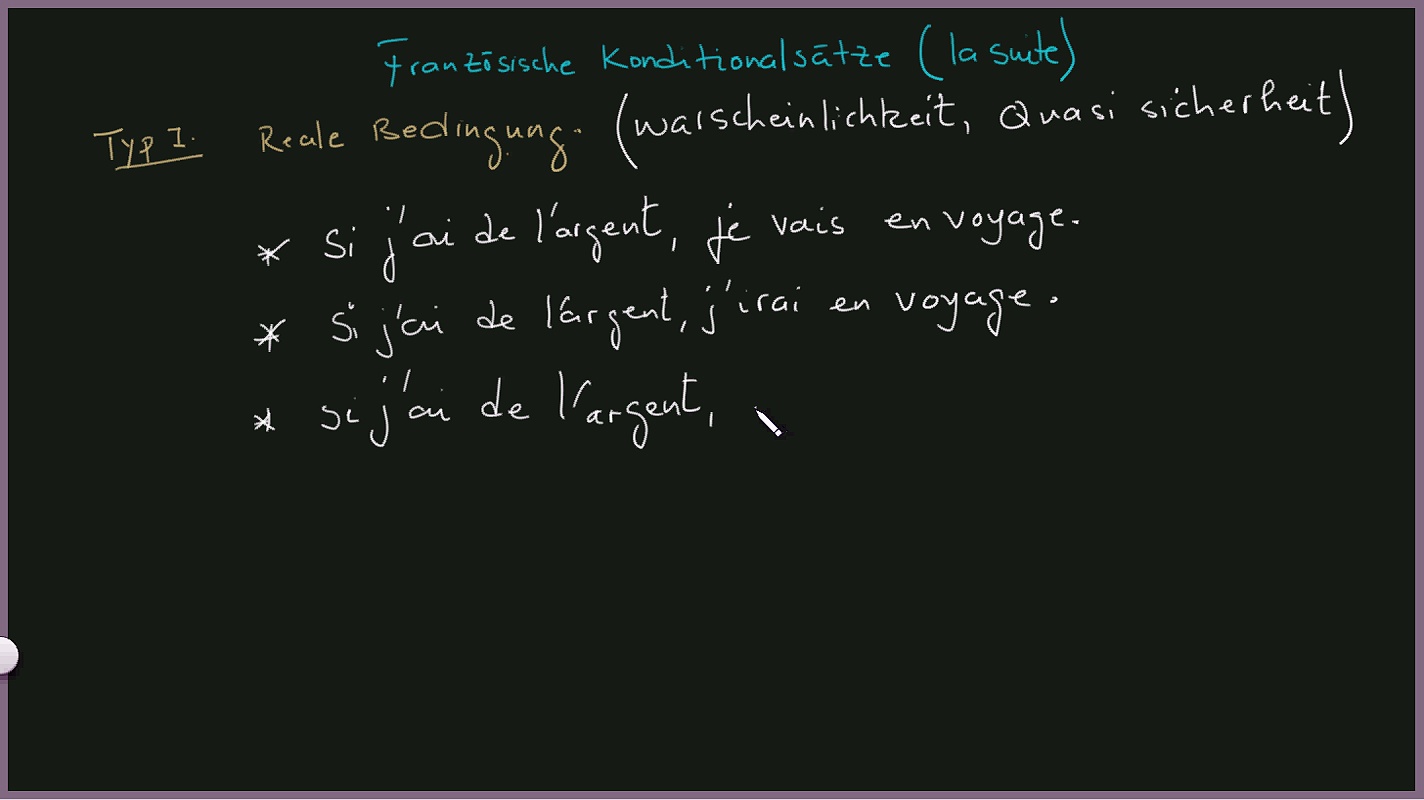 Französische Konditionalsätze (la suite)
Typ I. Reale Bedingung. (warscheinlichkeit, Quasi sicherheit)
* Si j'ai de l'argent, je vais en voyage.
* Si j'ai de l'argent, j'irai en voyage.
* si j'ai de l'argent,